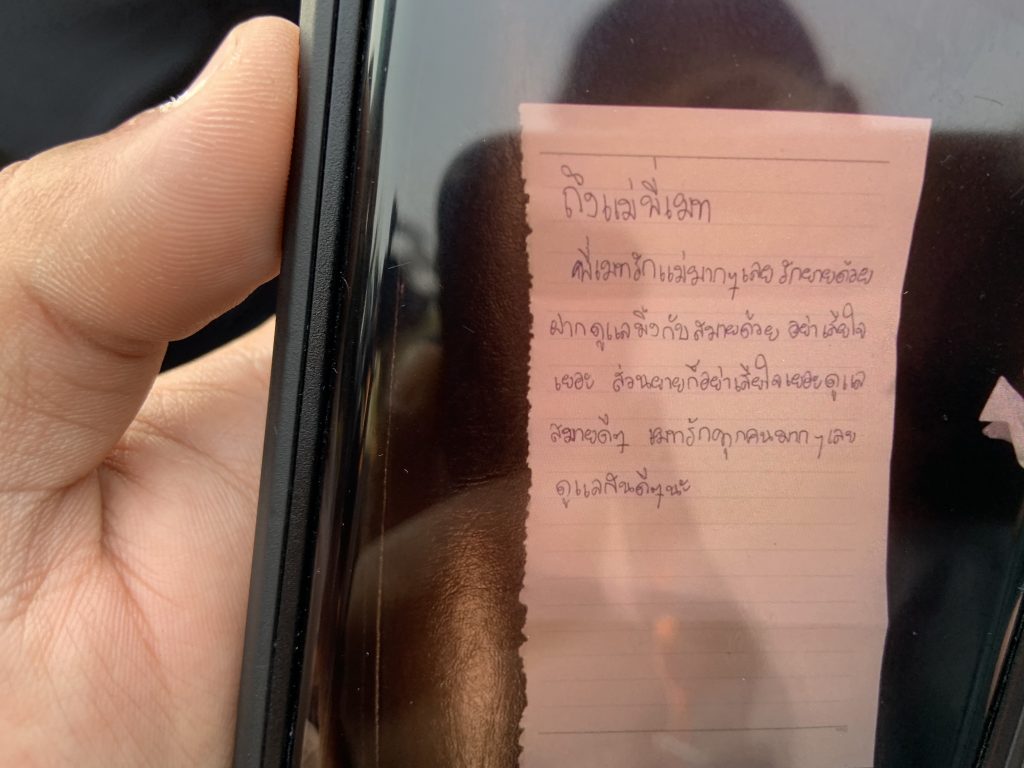 ถึงแม่พี่เมท
พี่เมทรักแม่มากๆเลย รักยายด้วย
ฝากดูแลมึงกับสมายด้วย อย่าเสียใจ
เยอะ ส่วนยายก็อย่าเสียใจเยอะดูแล
สมายดีๆ เมทรักทุกคนมากๆเลย
ดูแลกันดีๆนะ